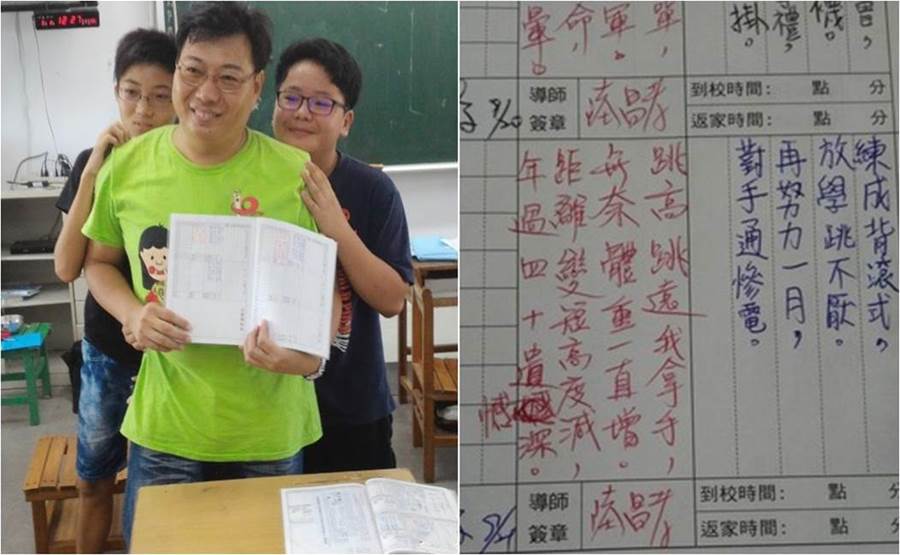 襪。
禮，
掛。
單，
軍。
命，
到校時間： 點 分
返家時間： 點 分
導師
簽章
練成背滾式，
放學跳不厭。
再努力一月，
對手通慘電。
跳高跳遠我拿手，
無奈體重一直增。
距離變短高度減，
年過四十遺憾深。
到校時間： 點
返家時間： 點 分
導師
簽章